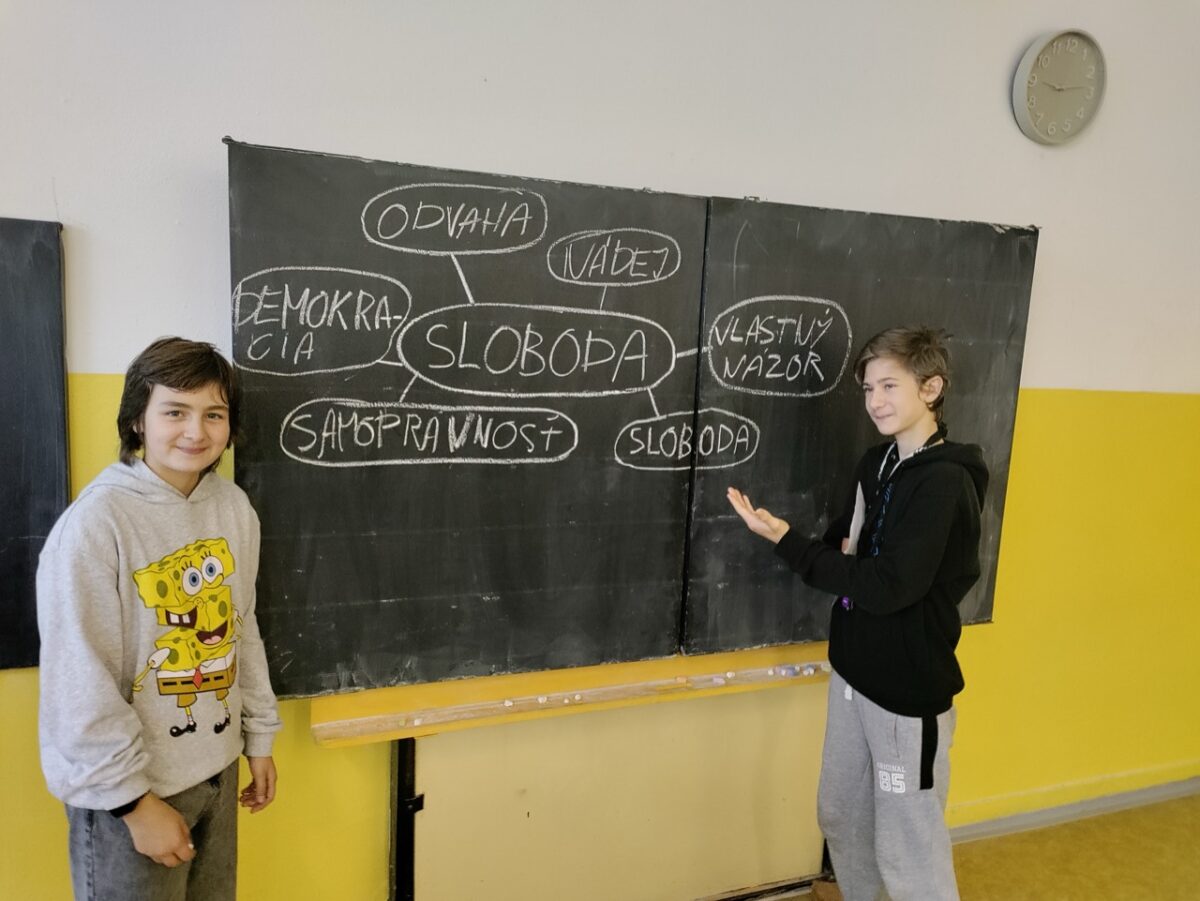 ODVAHA
NÁDEJ
DEMOKRA-
CIA
SLOBODA
VLASTNÝ
NÁZOR
SAMOPRÁVNOSŤ
SLOBODA
ORIGINAL
85
11 12 1
10 2
9 3
8 4
7 6 5